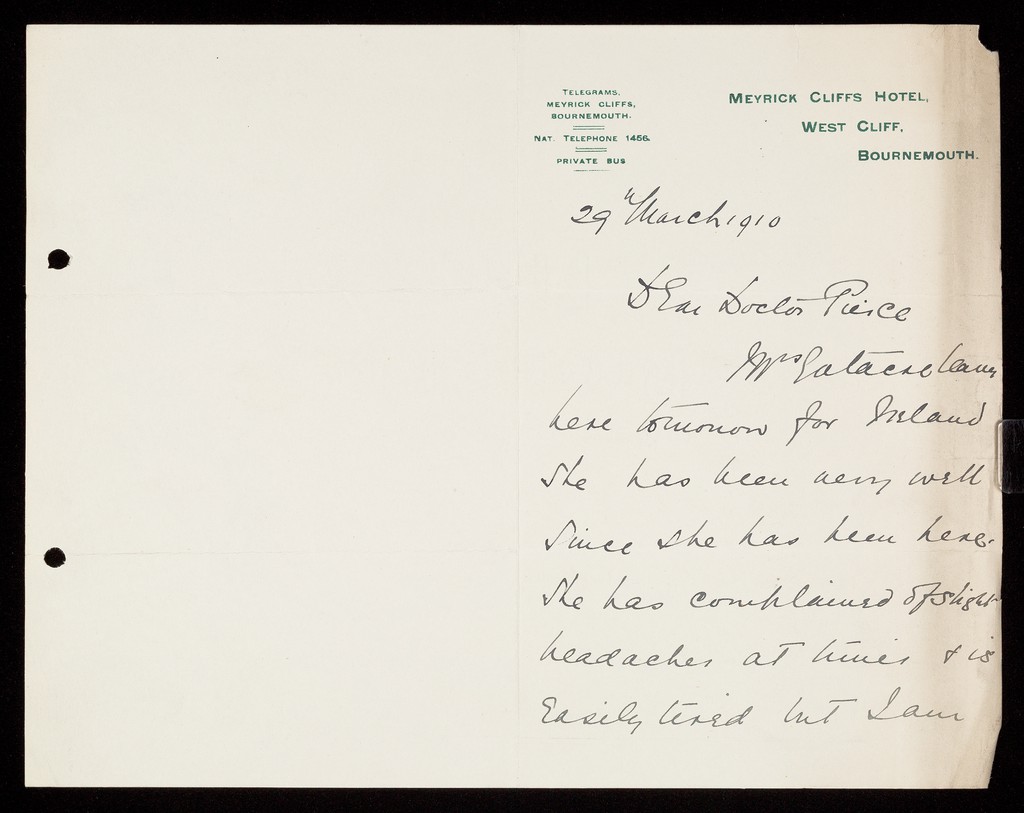 TELEGRAMS,
MEYRICK CLIFFS,
BOURNEMOUTH.
NAT. TELEPHONE 1456.
PRIVATE BUS
MEYRICK CLIFFS HOTEL,
WEST CLIFF,
BOURNEMOUTH.
29th March 1910
Dear Doctor Pierce
Mrs Gatacre leaves
here tomorrow for Ireland
She has been very well
since she has been here.
She has complained of slight
headaches at times & is
Easily tired but I am